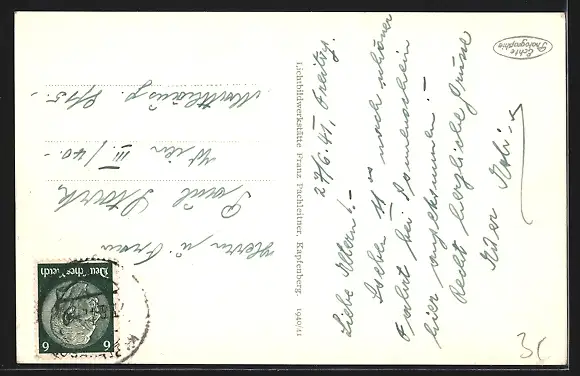 Echte
Photographie
27/6. 41, Freitag.
Liebe Eltern! -
Soeben 11 nach schöner
Fahrt bei Sonnenschein
hier angekommen. -
Recht herzliche Grüsse
Euer
Lichtbildwerkstätte Franz Pachleitner, Kapfenberg. 1940/41
Herrn u. Frau
Paul Stark
Wien III./40. -
8/15. -
Deutsches Reich
6 6
30